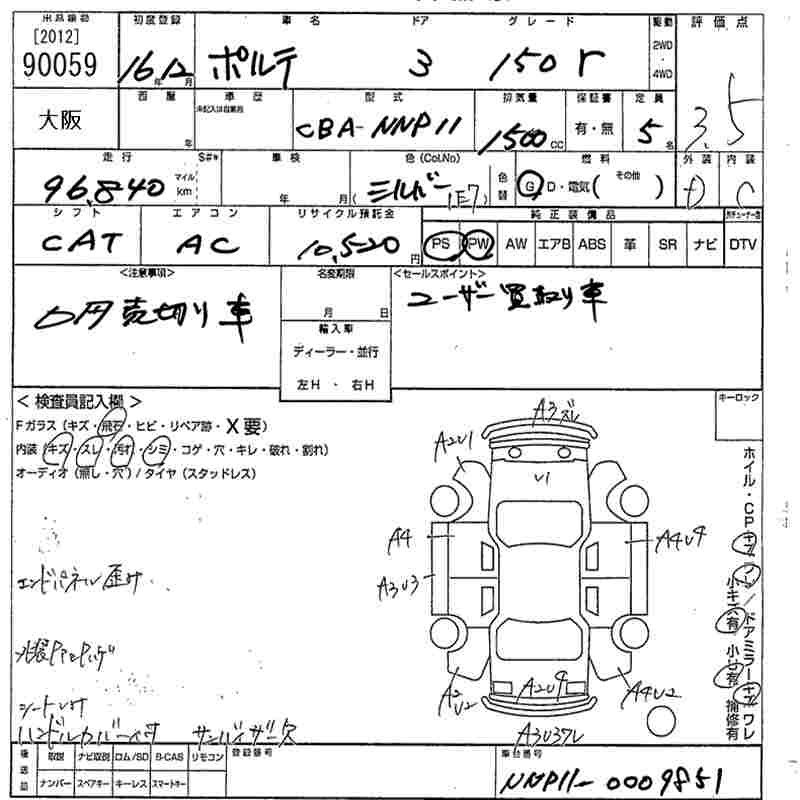 出品番号 初度登録 車名 ドア グレード 駆動 評価点
[2012] 90059 16年12月 ポルテ 3 150r 2WD・4WD 3.5
大阪 西暦 年 車歴 未記入は自家用 型式 CBA-NNP11 排気量 1500cc 保証書 有・無 定員 5名
走行 96,840 マイル km S#* 車検 年 月 色(CoLNo) シルバー(1E7) 色替 燃料 G D・電気( その他 ) 外装 D 内装 C
シフト エアコン リサイクル預託金 純正装備品
CAT AC 10,520円 PS PW AW エアB ABS 革 SR ナビ DTV
<注意事項> 名変期限 <セールスポイント>
0円売切り車 月 日 ユーザー買取り車
輸入車
ディーラー・並行
左H・右H
<検査員記入欄> キーロック
Fガラス(キズ・飛石・ヒビ・リペア跡・X要)
内装(キズ・スレ・汚れ・シミ・コゲ・穴・キレ・破れ・割れ)
オーディオ(無し・穴)/タイヤ(スタッドレス)
A3ズレ
A2U1
U1
A4 A4U4
A3U3
エンドパネル歪み
A2U2 A2U9 A4U2
A3U3ズレ
シートいけ
ハンドルカバー付 サンバイザー欠
ホイル・CPキズ
ワレ/ドアミラーキズワレ
小キズ有 小凹有 補修有
後送品 取説 ナビ取説 ロム/SD B-CAS リモコン 登録番号 車台番号
ナンバー スペアキー キーレス スマートキー NNP11-0009851